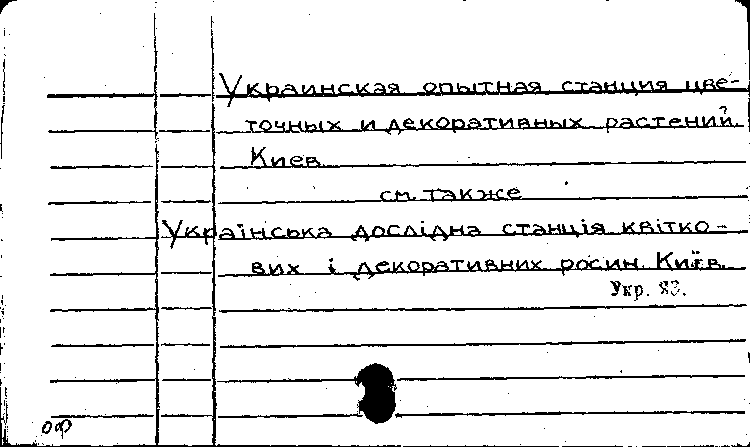 Украинская опытная станция цве-
точных и декоративных растений.
Киев
см. также
Українська дослідна станція квітко-
вих і декоративних росин. Київ.
Укр. 83.
ОФ